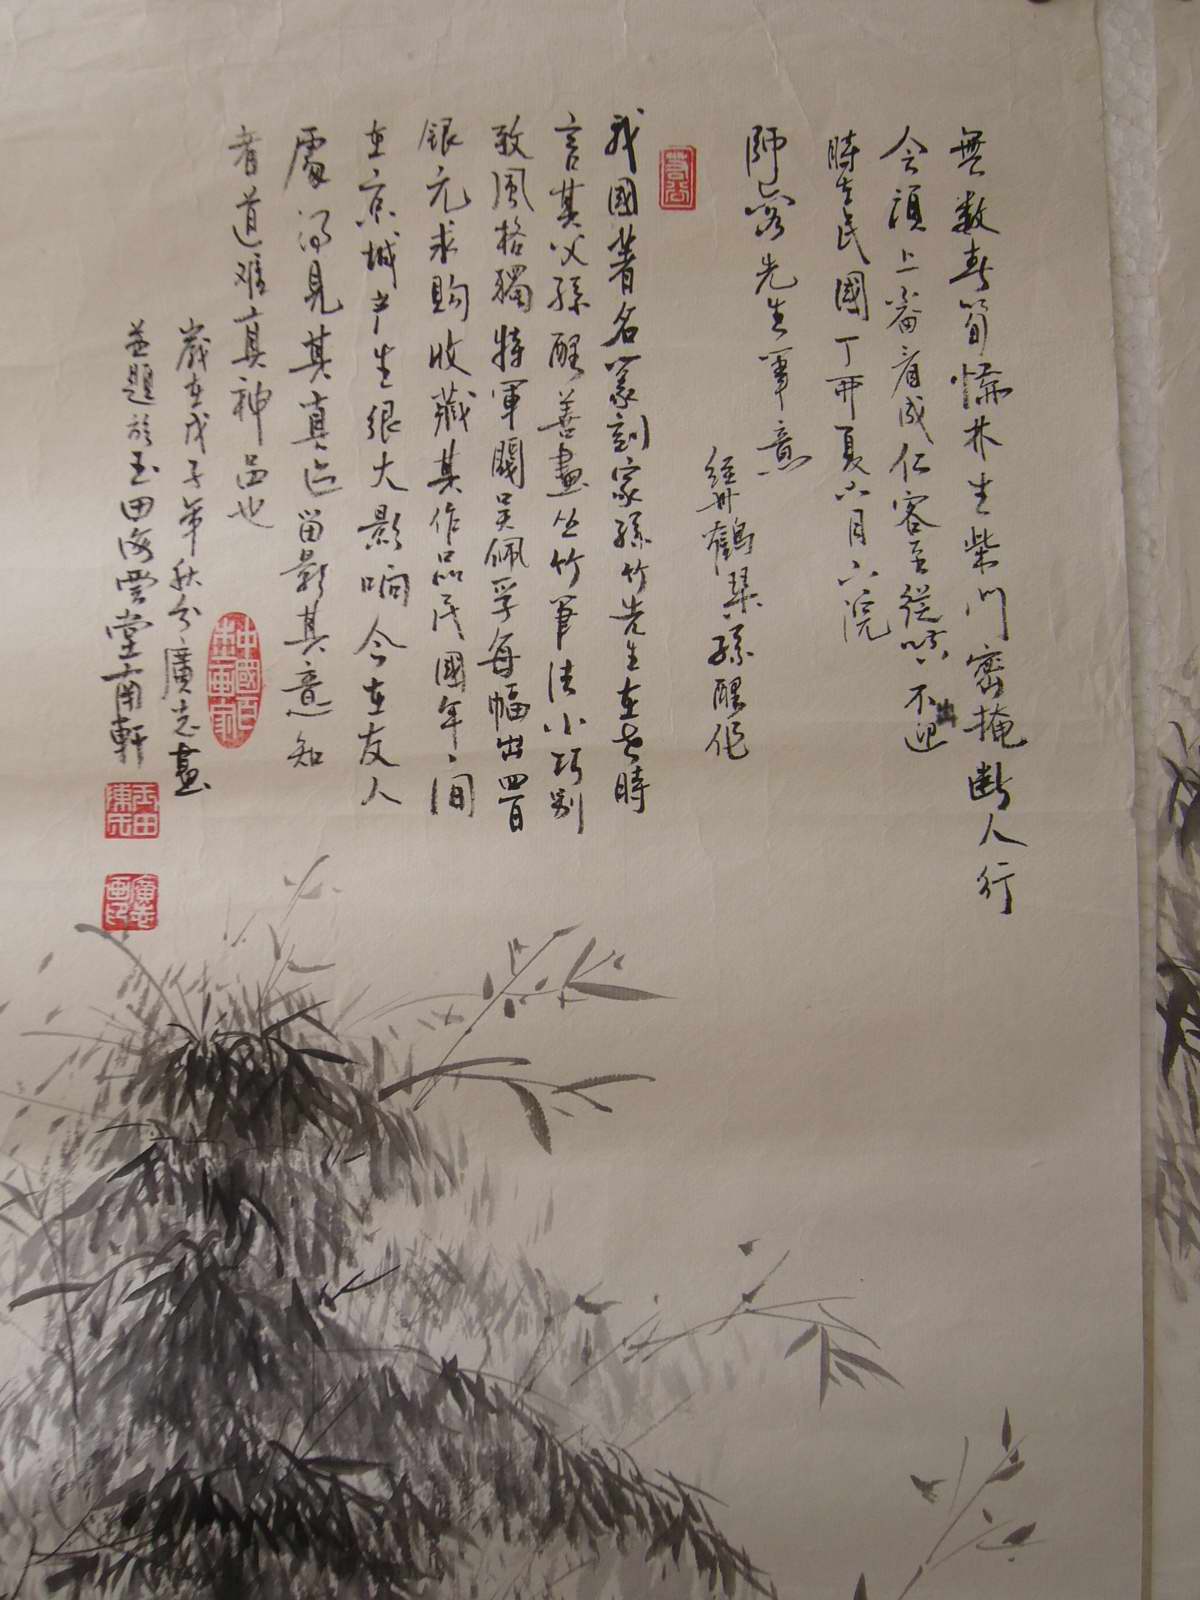 無数春笋懑林生柴门密掩断人行
会須上番看成仁客至從嗔不出迎
時在民國丁丑夏六月六浣
師家先生筆意
鶴琴孫醒作
我國著名篆刻家孫竹先生在世時
言其父孫醒善畫丛竹筆法小巧别
致風格獨特軍閥吴佩孚每幅出四百
銀元求购收藏其作品民國年间
在京城产生很大影响今在友人
處得見其真迹留影其意知
者道难真神品也
歲在戊子年秋分廣志畫
并題於玉田海雲堂南軒
玉田陳氏
廣志画印